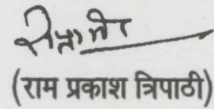 (राम प्रकाश त्रिपाठी)